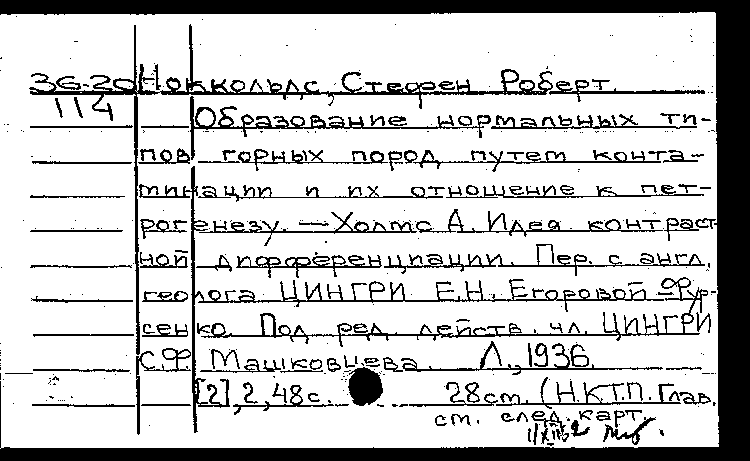 36-20 Ноккольдс, Стефен Роберт.
114 Образование нормальных ти-
пов горных пород путем конта-
минации и их отношение к пет-
рогенезу. — Холмс А. Идея контраст
ной дифференциации. Пер. с англ.
геолога ЦИНГРИ Е.Н. Егоровой Фур-
сенко. Под ред. действ. чл. ЦИНГРИ
С.Ф. Машковцева. Л., 1936.
[2], 2, 48с. 28см. (Н.К.Т.П. Глав.
см. след. карт.